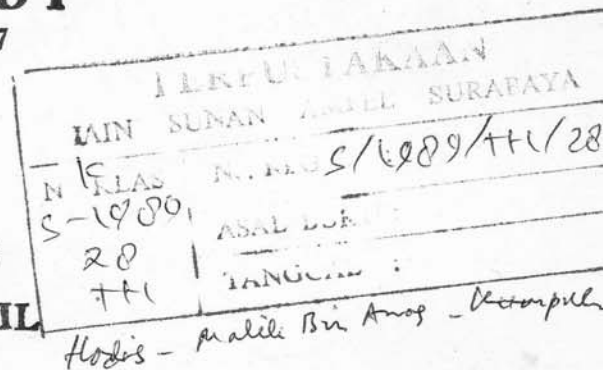 7
PERPUSTAKAAN
IAIN SUNAN AMPEL SURABAYA
N KLAS
K
S-1989
28
TH
N. REG S/1989/TH/28
ASAL BUKU :
TANGGAL :
IL
Hadis - Malik Bin Anas -